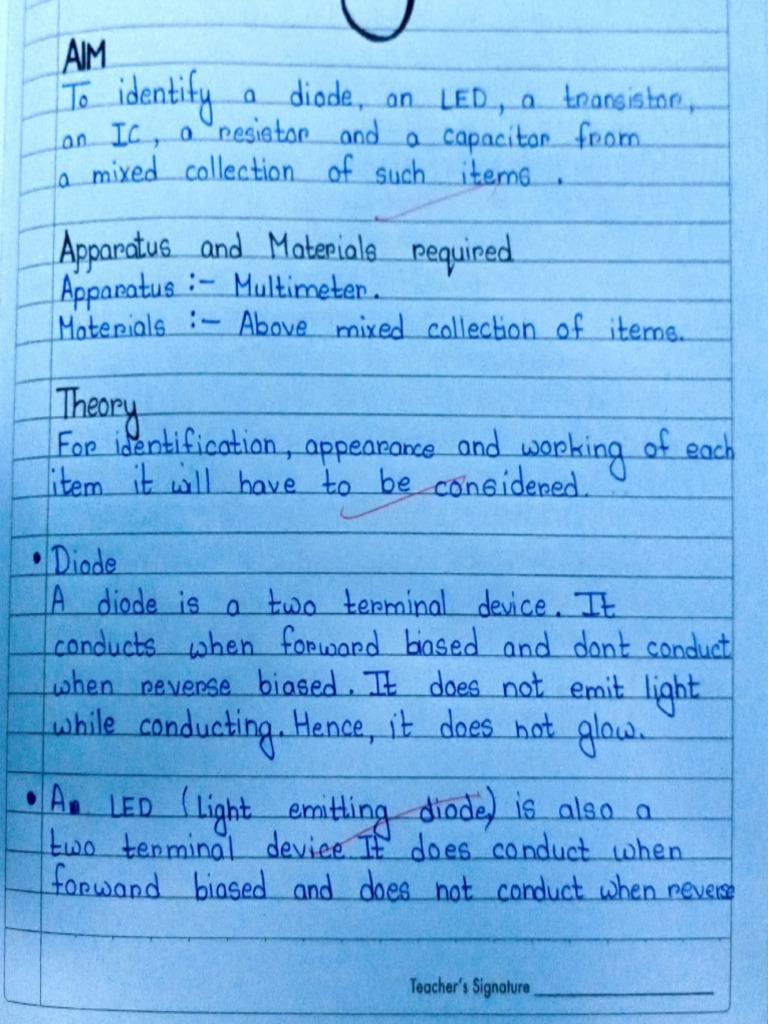 AIM
To identify a diode, an LED, a transistor,
an IC, a resistor and a capacitor from
a mixed collection of such items.
Apparatus and Materials required
Apparatus :- Multimeter.
Materials :- Above mixed collection of items.
Theory
For identification, appearance and working of each
item it will have to be considered.
• Diode
A diode is a two terminal device. It
conducts when forward biased and dont conduct
when reverse biased. It does not emit light
while conducting. Hence, it does not glow.
• An LED (Light emitting diode) is also a
two terminal device. It does conduct when
forward biased and does not conduct when reverse
Teacher's Signature